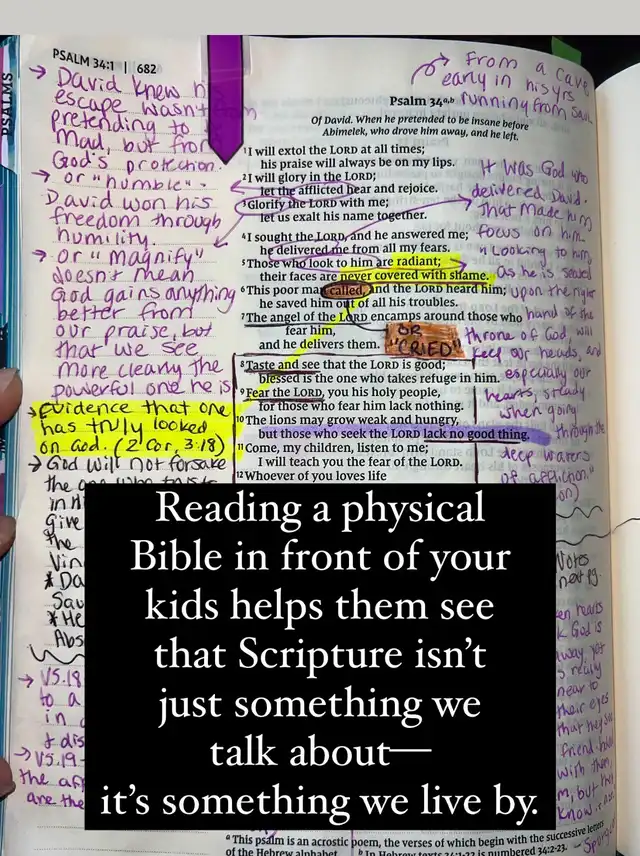 PSALM 34:1 | 682
PSALMS
→ David knew his
escape wasn't from
pretending to be
mad, but from
God's protection.
→ or "humble".
David won his
freedom through
humility.
→ or "magnify"
doesn't mean
God gains anything
better from
our praise, but
that we see
more clearly the
powerful one he is
→ Evidence that one
has truly looked
on God. (2 Cor. 3:18)
→ God will not forsake
the
in
Give
the
Vin
* Da
Sau
* He
Abs
→ VS.18
to a
in
+ dis
→ VS.19-
the aff
are the
Psalm 34a,b
Of David. When he pretended to be insane before
Abimelek, who drove him away, and he left.
1 I will extol the LORD at all times;
his praise will always be on my lips.
2 I will glory in the LORD;
let the afflicted hear and rejoice.
3 Glorify the LORD with me;
let us exalt his name together.
4 I sought the LORD, and he answered me;
he delivered me from all my fears.
5 Those who look to him are radiant;
their faces are never covered with shame.
6 This poor man called, and the LORD heard him;
he saved him out of all his troubles.
7 The angel of the LORD encamps around those who
fear him,
and he delivers them.
OR
"CRIED"
8 Taste and see that the LORD is good;
blessed is the one who takes refuge in him.
9 Fear the LORD, you his holy people,
for those who fear him lack nothing.
10 The lions may grow weak and hungry,
but those who seek the LORD lack no good thing.
11 Come, my children, listen to me;
I will teach you the fear of the LORD.
12 Whoever of you loves life
→ From a cave
early in his yrs
running from Saul.
It was God who
delivered David.
That made him
focus on him.
"Looking to him,
as he is seated
upon the right
hand of the
throne of God, will
keep our heads, and
especially our
hearts, steady
when going
through the
deep waters
of affliction."
Notes
next pg.
hearts
God is
away yet
is really
near to
their eyes
that they see
friend
with them,
but
know
Reading a physical
Bible in front of your
kids helps them see
that Scripture isn't
just something we
talk about—
it's something we live by.
a This psalm is an acrostic poem, the verses of which begin with the successive letters
of the Hebrew alphabet. b In Hebrew texts 34:1-22 is numbered 34:2-23.